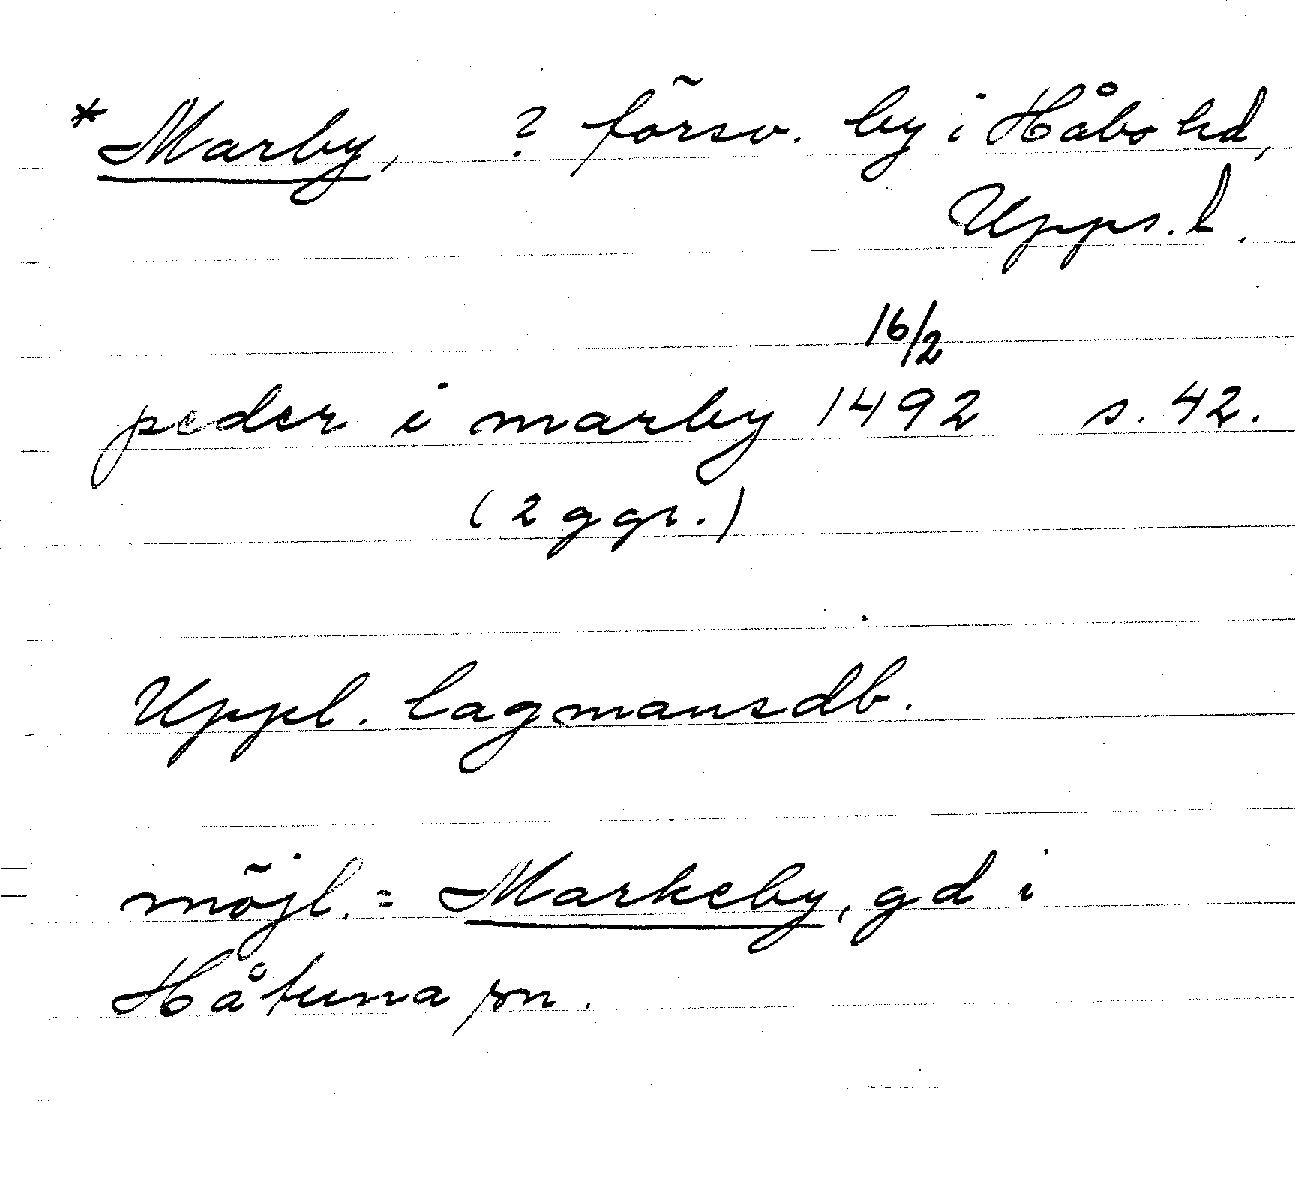 *Marby, ? försv. by i Håbo hd,
Upps. l.
16/2
peder i marby 1492 s. 42.
(2 ggr.)
Uppl. lagmansdb.
möjl. = Markeby, gd i
Håtuna sn.